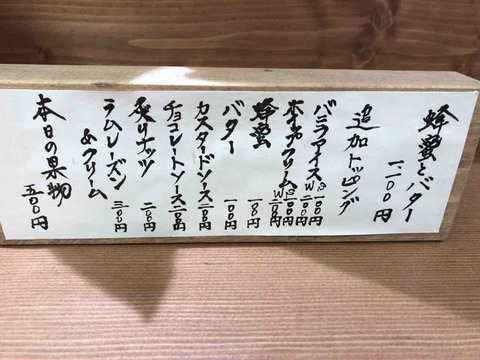 蜂蜜とバター
追加トッピング
バニラアイス
ホイップクリーム
蜂蜜 一〇〇円
バター 一〇〇円
カスタードソース 二〇〇円
チョコレートソース 二〇〇円
炙りナッツ 二〇〇円
ラムレーズン
&クリーム 三〇〇円
本日の果物 五〇〇円